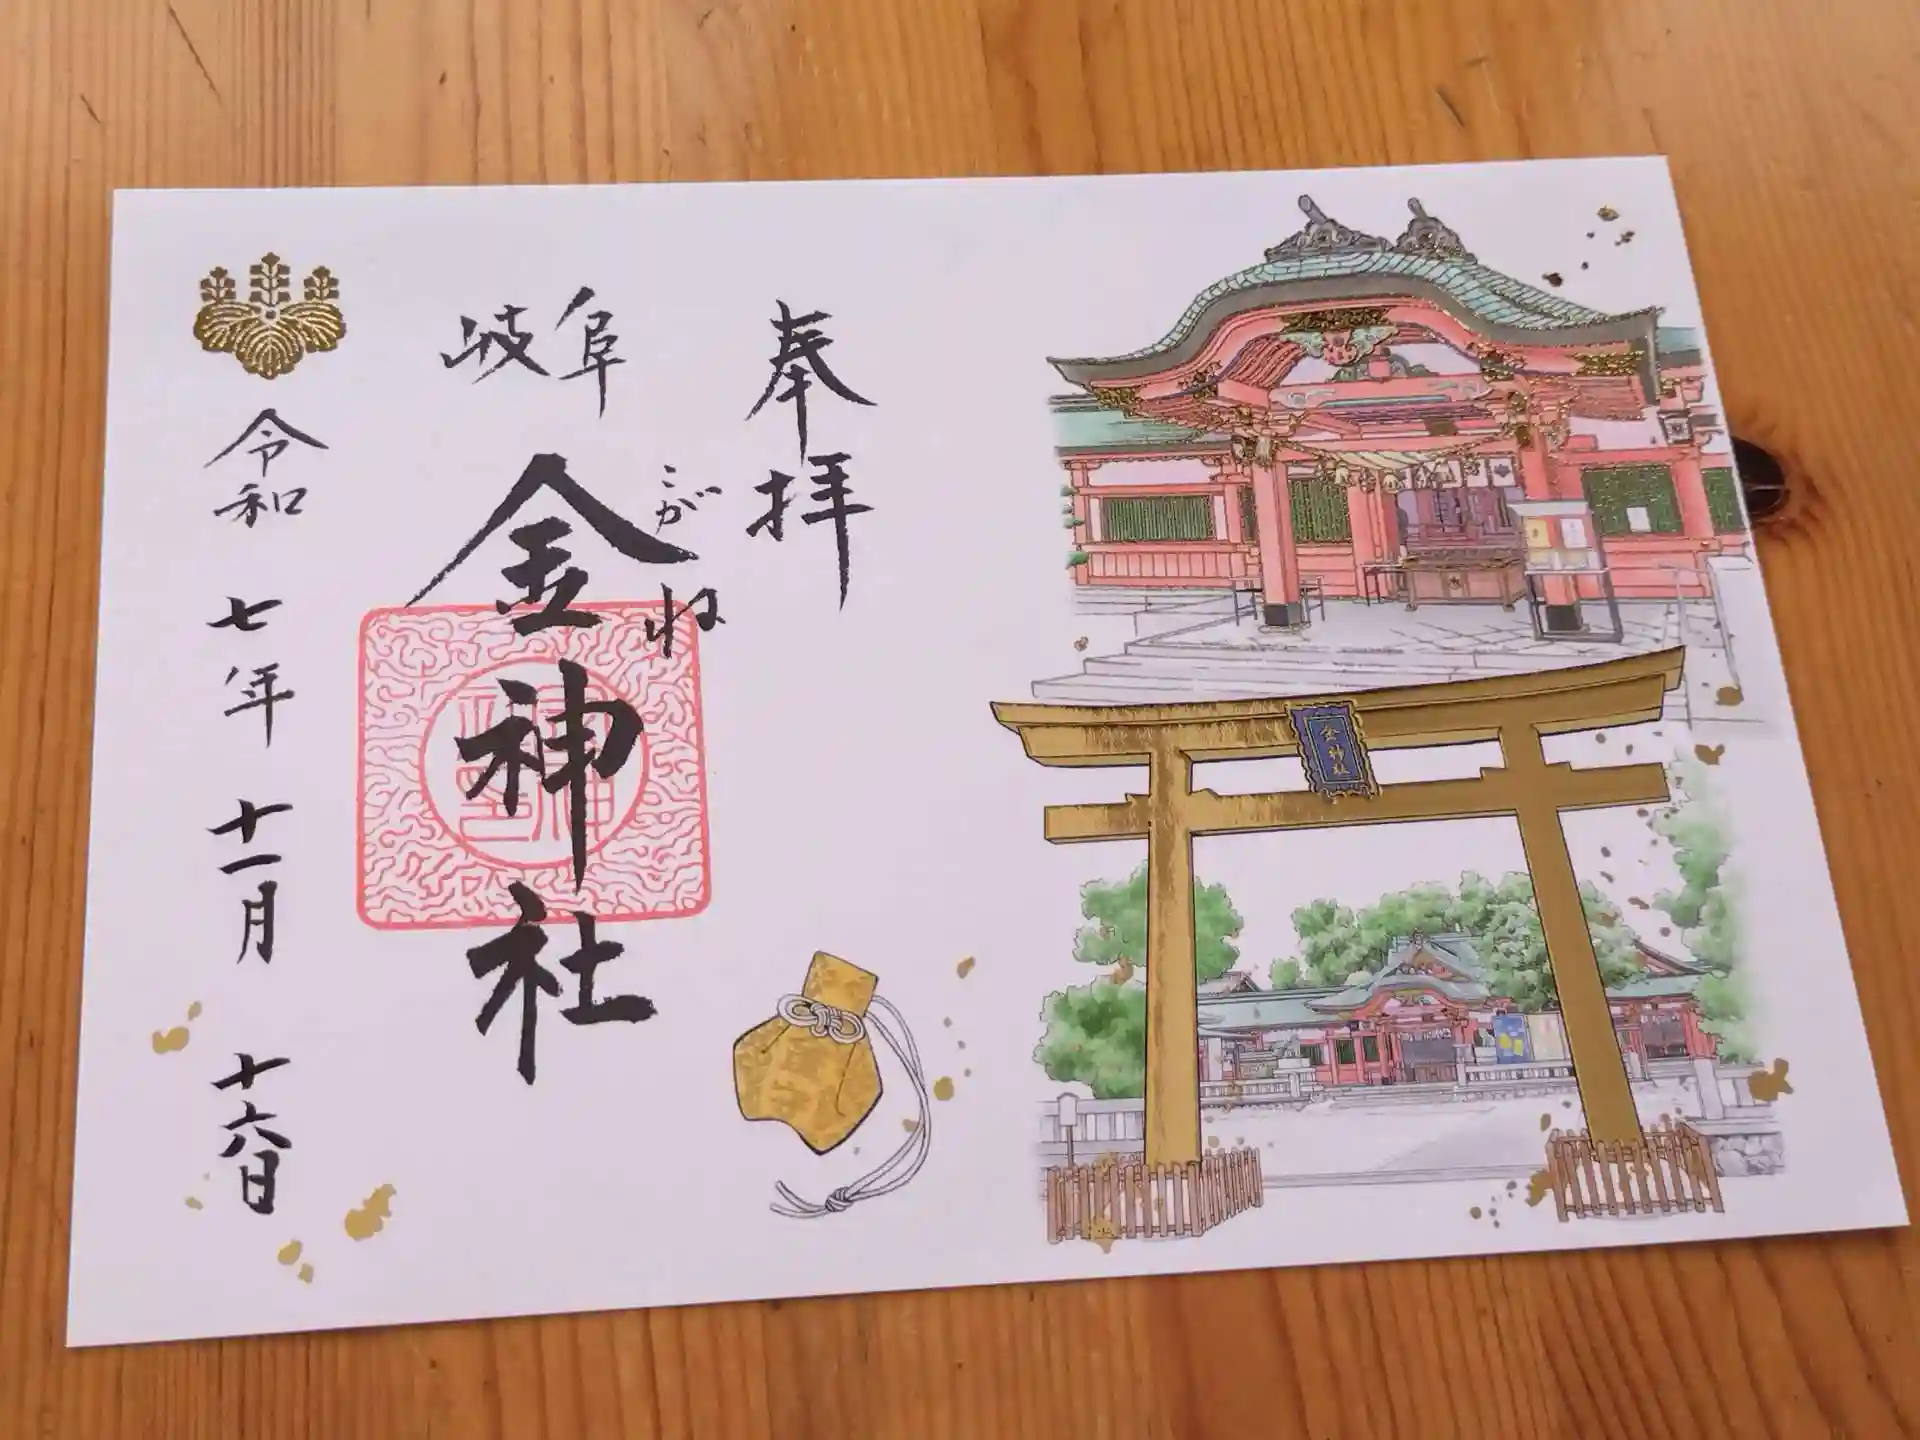 奉拝
岐阜
こがね
金神社
令和七年十一月十六日
金神社